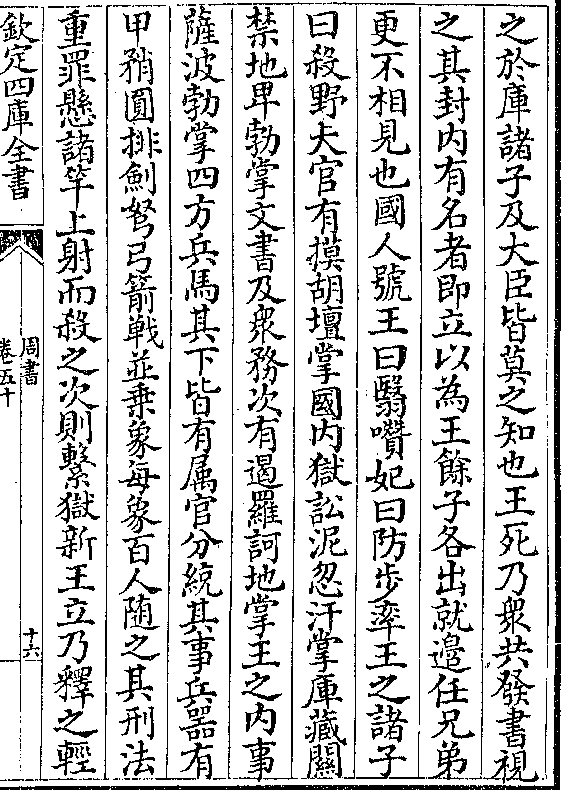 之於庫諸子及大臣皆莫之知也王死乃衆共發書視
之其封内有名者即立以為王餘子各出就邉任兄弟
更不相見也國人號王曰翳囋妃曰防步率王之諸子
曰殺野夫官有摸胡壇掌國内獄訟泥忽汗掌庫藏關
禁地卑勃掌文書及衆務次有遏羅訶地掌王之内事
薩波勃掌四方兵馬其下皆有属官分統其事兵器有
甲矟圓排劎弩弓箭戰並乗象每象百人隨之其刑法
重罪懸諸竿上射而殺之次則繋獄新王立乃釋之輕
欽定四庫全書
周書
卷五十
十六